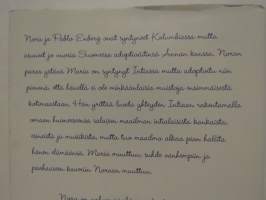 Nora ja Pablo Enberg ovat syntyneet Kolumbiassa mutta
asuneet jo vuosia Suomessa adoptioäitinsä Annan kanssa. Noran
paras ystävä Maria on syntynyt Intiassa mutta adoptoitu niin
pienenä että hänellä ei ole minkäänlaisia muistoja ensimmäisestä
kotimaastaan. Hän yrittää luoda yhteyden Intiaan rakentamalla
omaan huoneeseensa salaisen maailman intialaisesta kankaista,
esineistä ja musiikista, mutta tuo maailma alkaa pian hallita
hänen elämäänsä. Maria muuttuu, suhde vanhempiin ja
parhaaseen kaveriin Noraan muuttuu.
Nora on